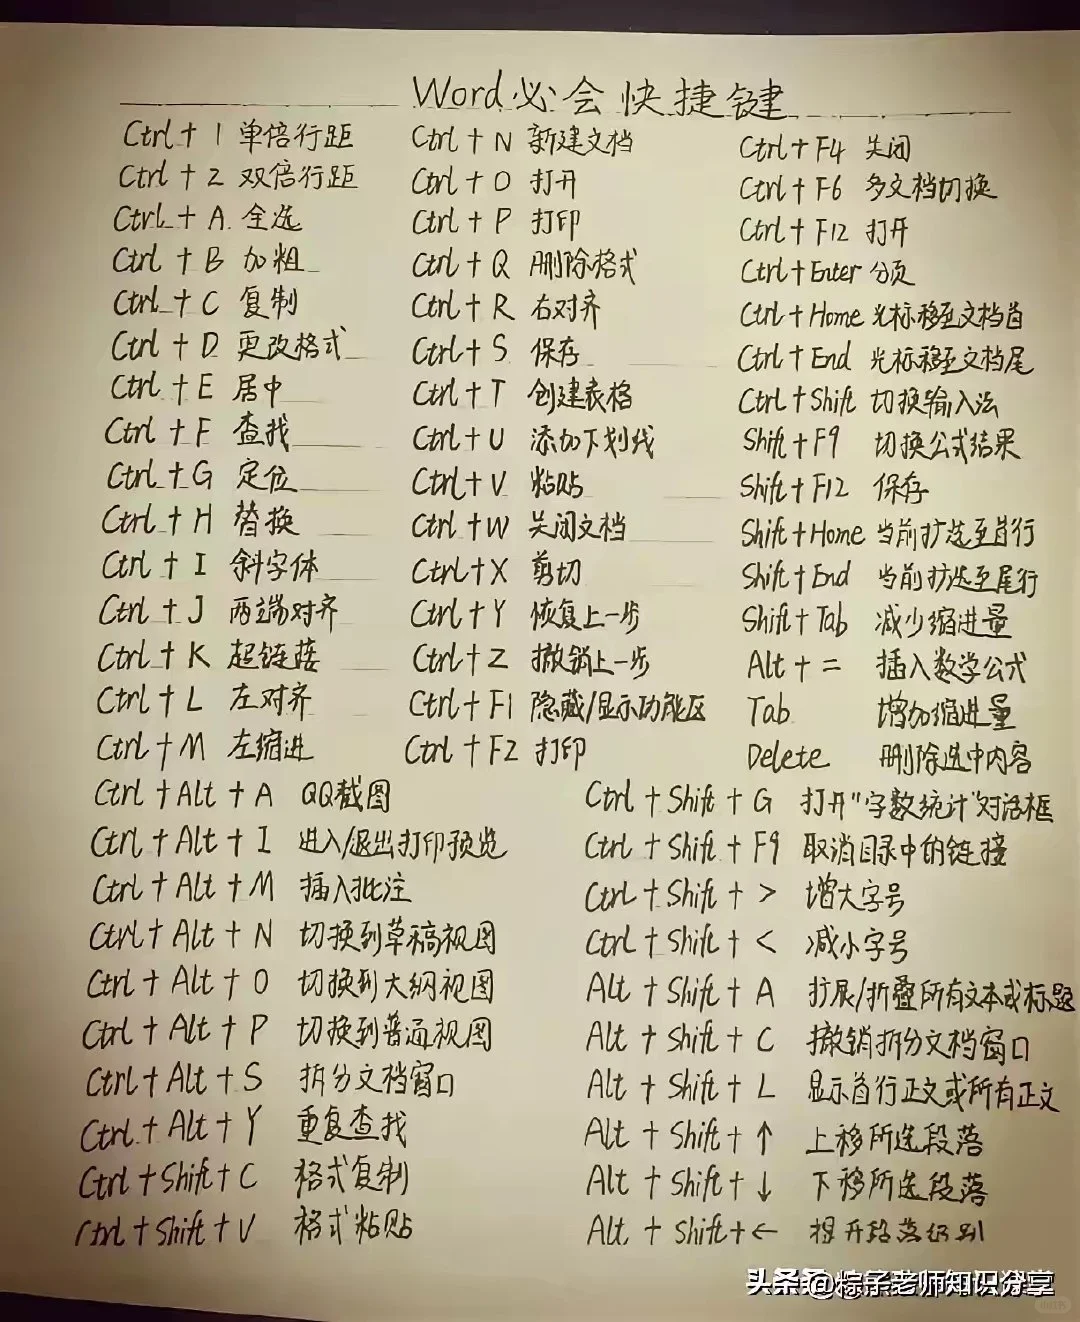 Word必会快捷键
Ctrl + 1 单倍行距
Ctrl + 2 双倍行距
Ctrl + A 全选
Ctrl + B 加粗
Ctrl + C 复制
Ctrl + D 更改格式
Ctrl + E 居中
Ctrl + F 查找
Ctrl + G 定位
Ctrl + H 替换
Ctrl + I 斜字体
Ctrl + J 两端对齐
Ctrl + K 超链接
Ctrl + L 左对齐
Ctrl + M 左缩进
Ctrl + N 新建文档
Ctrl + O 打开
Ctrl + P 打印
Ctrl + Q 删除格式
Ctrl + R 右对齐
Ctrl + S 保存
Ctrl + T 创建表格
Ctrl + U 添加下划线
Ctrl + V 粘贴
Ctrl + W 关闭文档
Ctrl + X 剪切
Ctrl + Y 恢复上一步
Ctrl + Z 撤销上一步
Ctrl + F1 隐藏/显示功能区
Ctrl + F2 打印
Ctrl + F4 关闭
Ctrl + F6 多文档切换
Ctrl + F12 打开
Ctrl + Enter 分页
Ctrl + Home 光标移至文档首
Ctrl + End 光标移至文档尾
Ctrl + Shift 切换输入法
Shift + F9 切换公式结果
Shift + F12 保存
Shift + Home 当前扩选至首行
Shift + End 当前扩选至尾行
Shift + Tab 减少缩进量
Alt + = 插入数学公式
Tab 增加缩进量
Delete 删除选中内容
Ctrl + Alt + A QQ截图
Ctrl + Alt + I 进入/退出打印预览
Ctrl + Alt + M 插入批注
Ctrl + Alt + N 切换到草稿视图
Ctrl + Alt + O 切换到大纲视图
Ctrl + Alt + P 切换到普通视图
Ctrl + Alt + S 拆分文档窗口
Ctrl + Alt + Y 重复查找
Ctrl + Shift + C 格式复制
Ctrl + Shift + V 格式粘贴
Ctrl + Shift + G 打开"字数统计"对话框
Ctrl + Shift + F9 取消目录中的链接
Ctrl + Shift + > 增大字号
Ctrl + Shift + < 减小字号
Alt + Shift + A 扩展/折叠所有文本或标题
Alt + Shift + C 撤销拆分文档窗口
Alt + Shift + L 显示首行正文或所有正文
Alt + Shift + ↑ 上移所选段落
Alt + Shift + ↓ 下移所选段落
Alt + Shift + ← 提升段落级别
头条@粽子老师知识分享